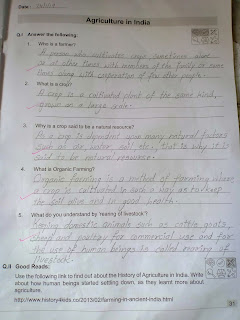 Date:
Agriculture in India
Q.I Answer the following.
1. Why is a farmer?
A person who cultivates crops sometimes alone
or at other times with members of the family or some
times along with cooperation of few other people.
2. What is a crop?
A crop is a cultivated plant of the same kind,
grown on a large scale.
3. Why is a crop said to be a natural resource?
As a crop is dependent upon many natural factors
such as air, water, soil etc, that is why it is
said to be natural resource.
4. What is Organic Farming?
Organic farming is a method of farming where
a crop is cultivated in such a way as to keep
the soil alive and in good health.
5. What do you understand by 'rearing of livestock'?
Keeping domestic animals such as cattle, goats,
sheep and poultry for commercial use and for
the use of human beings is called rearing of
livestock.
Q.II Good Reads:
Use the following link to find out about the History of Agriculture in India. Write
about how human beings started settling down, as they learnt more about
agriculture.
http://www.history4kids.co/2013/02/farming-in-ancient-india.html
31